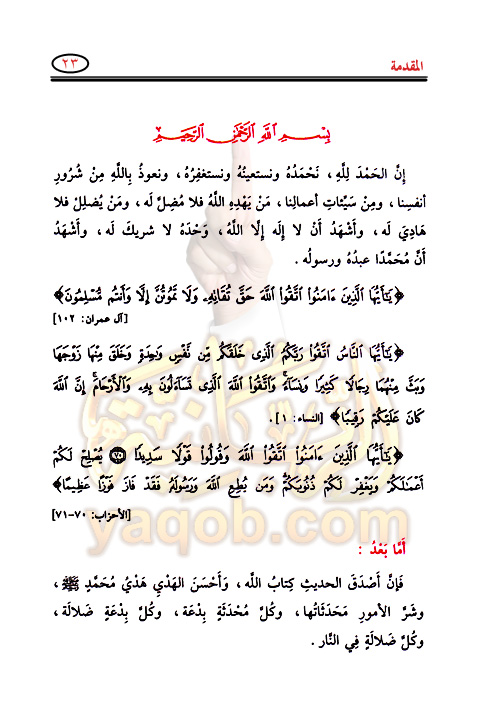 المقدمة
٢٣
بِسْمِ اللَّهِ الرَّحْمَٰنِ الرَّحِيمِ
إِنَّ الحَمْدَ لِلَّهِ، نَحْمَدُهُ ونستعينُهُ ونستغفِرُهُ، ونعوذُ بِاللَّهِ مِنْ شُرُورِ
أنفسِنا، ومِنْ سَيِّئاتِ أعمالِنا، مَنْ يَهْدِهِ اللَّهُ فلا مُضِلَّ لَه، ومَنْ يُضلِلْ فلا
هَادِيَ لَه، وأَشْهَدُ أَن لا إِلَه إِلَّا اللَّهُ، وَحْدَهُ لا شريكَ لَه، وأَشْهَدُ
أَنَّ مُحَمَّدًا عبدُهُ ورسولُه.
﴿يَٰٓأَيُّهَا ٱلَّذِينَ ءَامَنُوا۟ ٱتَّقُوا۟ ٱللَّهَ حَقَّ تُقَالِهِۦ وَلَا تَمُوتُنَّ إِلَّا وَأَنتُم مُّسْلِمُونَ﴾
[آل عمران: ١٠٢]
﴿يَٰٓأَيُّهَا ٱلنَّاسُ ٱتَّقُوا۟ رَبَّكُمُ ٱلَّذِى خَلَقَكُم مِّن نَّفْسٍ وَٰحِدَةٍ وَخَلَقَ مِنْهَا زَوْجَهَا
وَبَثَّ مِنْهُمَا رِجَالًا كَثِيرًا وَنِسَآءً ۚ وَٱتَّقُوا۟ ٱللَّهَ ٱلَّذِى تَسَآءَلُونَ بِهِۦ وَٱلْأَرْحَامَ ۚ إِنَّ ٱللَّهَ
كَانَ عَلَيْكُمْ رَقِيبًا﴾ [النساء: ١].
﴿يَٰٓأَيُّهَا ٱلَّذِينَ ءَامَنُوا۟ ٱتَّقُوا۟ ٱللَّهَ وَقُولُوا۟ قَوْلًا سَدِيدًا ۝٧٠ يُصْلِحْ لَكُمْ
أَعْمَٰلَكُمْ وَيَغْفِرْ لَكُمْ ذُنُوبَكُمْ وَمَن يُطِعِ ٱللَّهَ وَرَسُولَهُۥ فَقَدْ فَازَ فَوْزًا عَظِيمًا﴾
[الأحزاب: ٧٠-٧١]
أَمَّا بَعْدُ:
فَإِنَّ أَصْدَقَ الحديثِ كِتابُ اللَّه، وَأَحْسَنَ الهَدْيِ هَدْيُ مُحَمَّدٍ ﷺ،
وشَرَّ الأمورِ مُحَدَثَاتُها، وكُلَّ مُحْدَثَةٍ بِدْعَة، وكُلَّ بِدْعَةٍ ضَلالَة،
وكُلَّ ضَلالَةٍ فِي النَّار.
yaqob.com